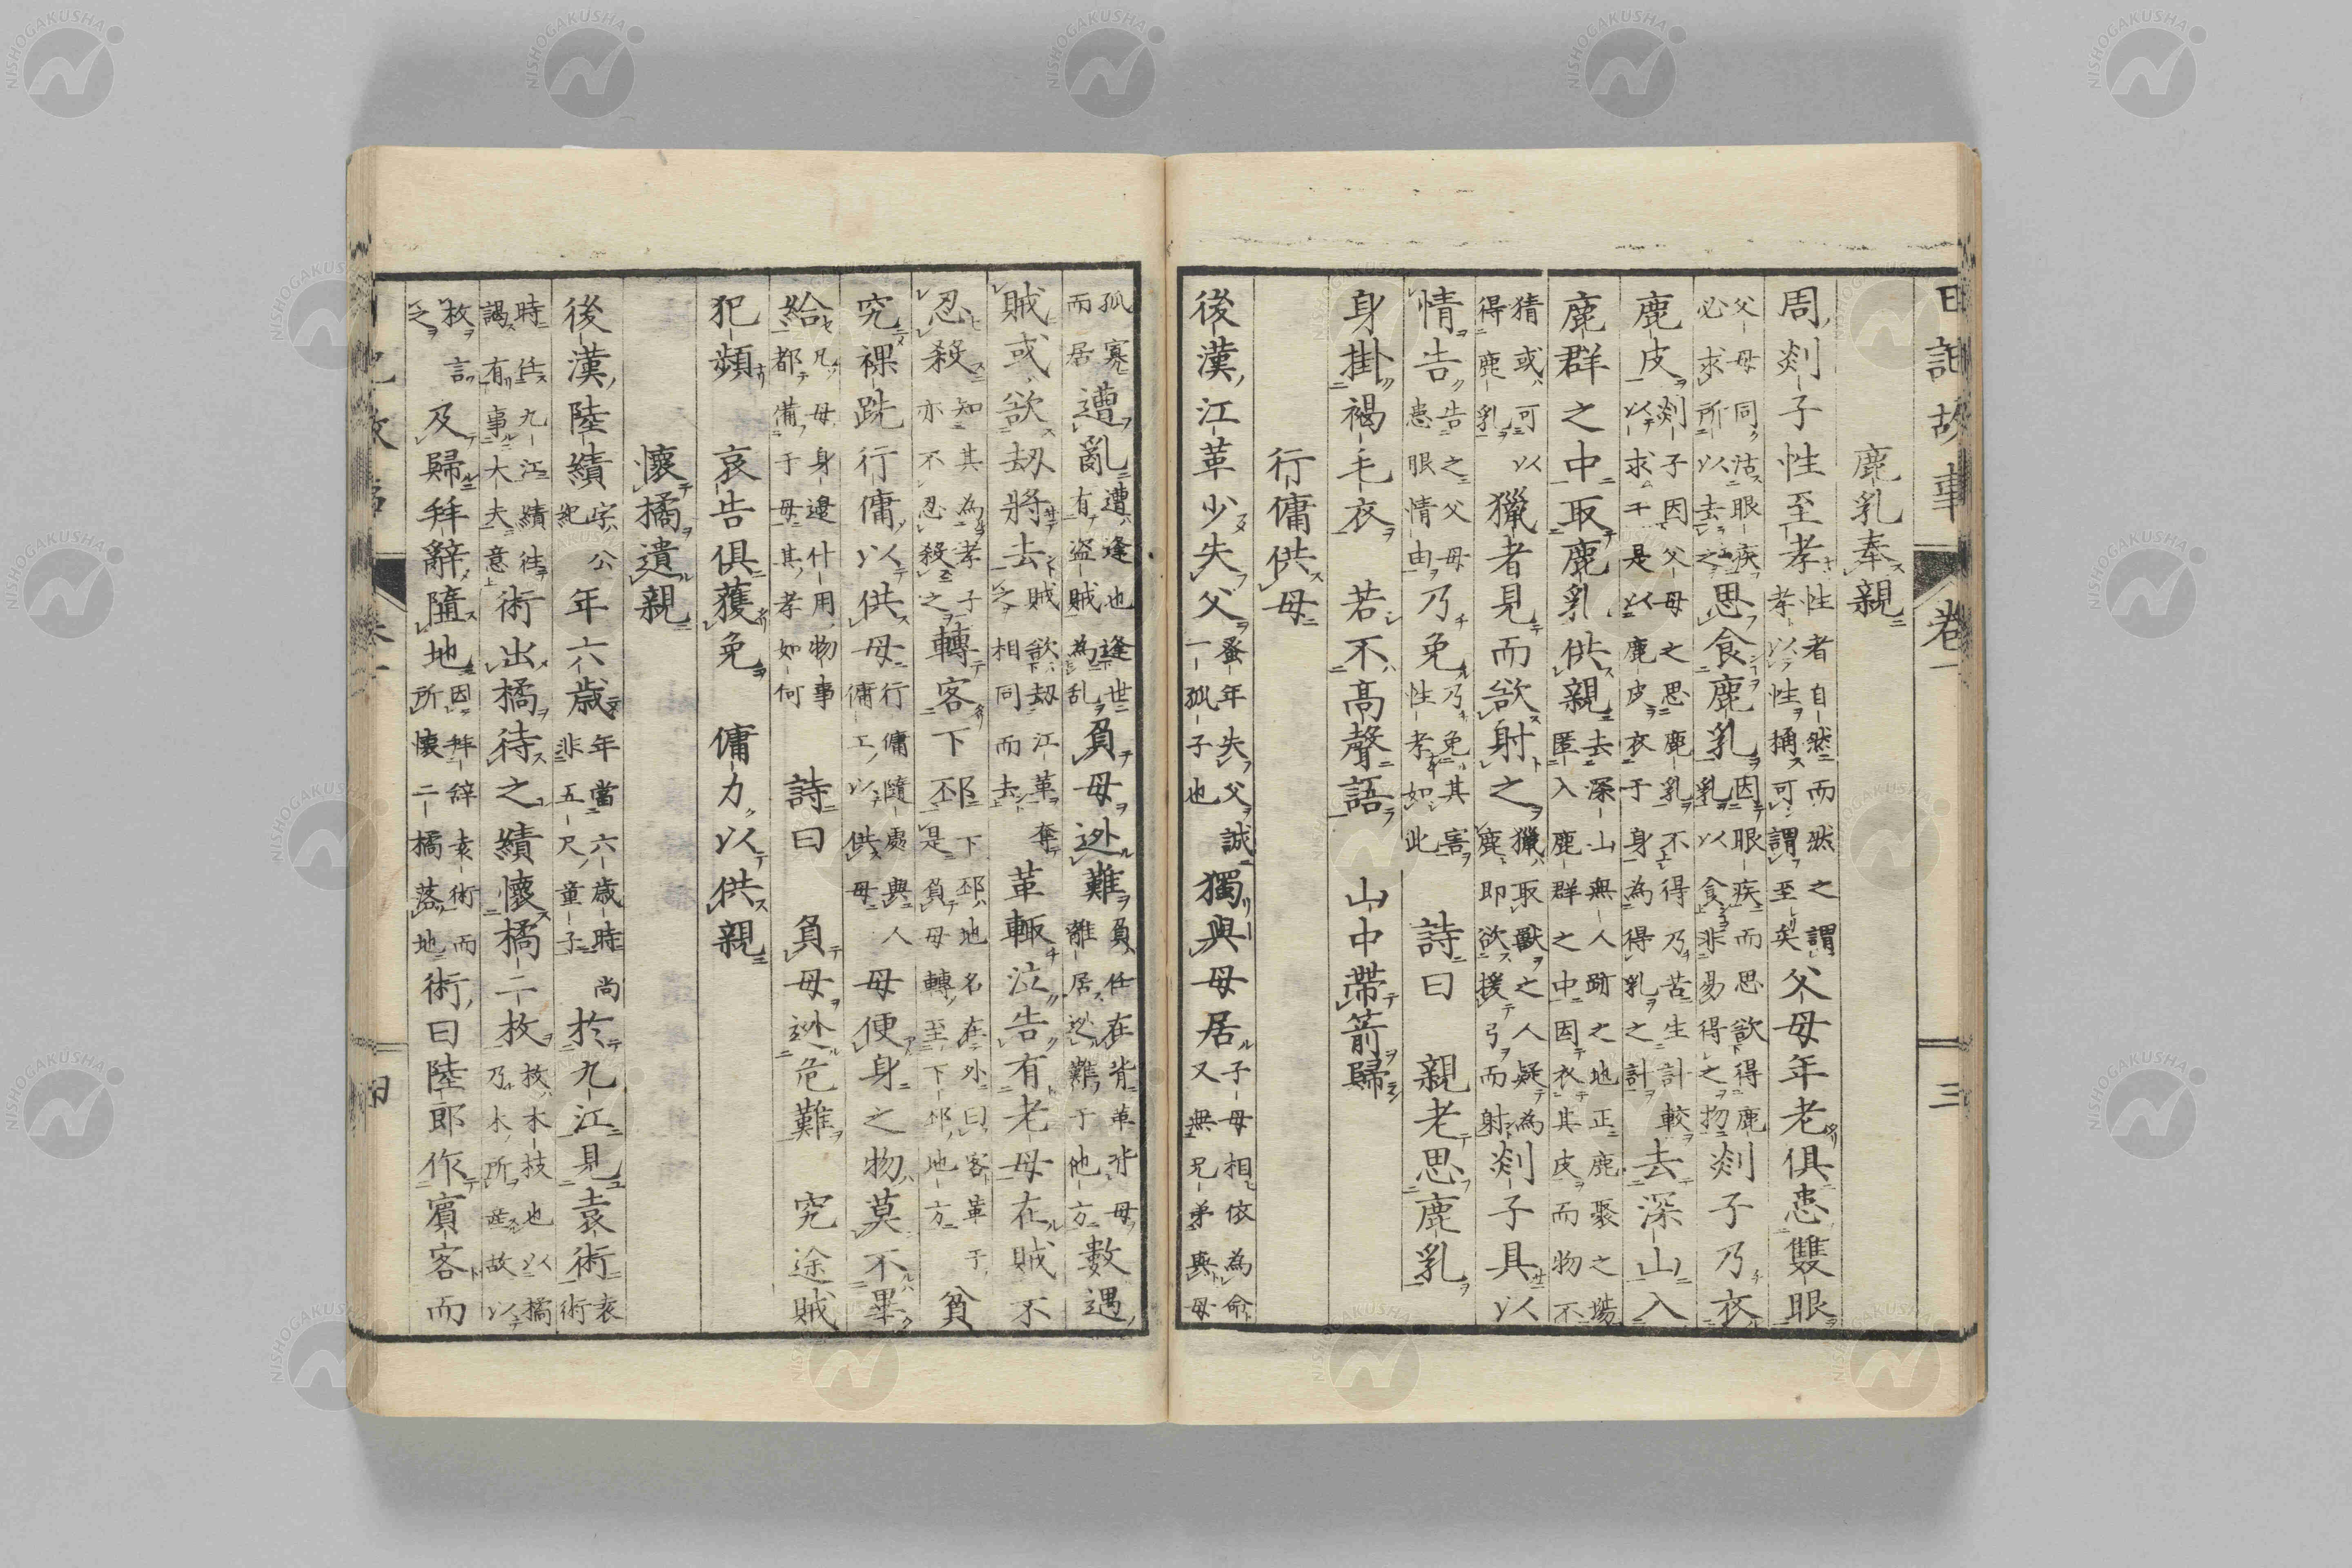 日記故事 卷一 三
鹿乳奉親
周剡子性至孝性者自然而然之謂孝以性稱可謂至矣父母年老俱患雙眼
父母同沽眼疾必求所以去之思食鹿乳因眼疾而思欲得鹿乳以食非易得之物剡子乃衣
鹿皮剡子因父母之思鹿乳不得乃苦生計較以求于是以鹿皮衣于身為得乳之計去深山入
鹿群之中取鹿乳供親去深山無人跡之地正鹿聚之場匿入鹿群之中因衣其皮而物不
猜或可以得鹿乳獵者見而欲射之獵取獸之人疑為鹿即欲援弓而射剡子具以
情告告之父母患眼情由乃免乃免其害性孝如此 詩曰 親老思鹿乳
身掛褐毛衣 若不高聲語 山中帶箭歸
行傭供母
後漢江革少失父蚤年失父誠一孤子也獨與母居子母相依為命又無兄弟與母
孤寡而居遭亂遭逢也逢世有盜賊為乱負母逃難負任在背革背母離居逃難于他方數遇
賊或欲劫將去賊欲劫江革奪之相同而去革輙泣告有老母在賊不
忍殺知其為孝子亦不忍殺之轉客下邳下邳地名在外曰客革于是負母轉至下邳地方貧
究裸跣行傭以供母行傭隨處與人傭工以供母母便身之物莫不畢
給凡母身邊什用物事都備于母其孝如何 詩曰 負母逃危難 究途賊
犯頻 哀告俱獲免 傭力以供親
懷橘遺親
後漢陸績字公紀年六歲年當六歲時尚非五尺童子於九江見袁術袁術
時任九江績往謁有事大夫意術出橘待之績懷橘二枚枚木技也以橘乃木所産故以
枚言之及歸拜辭隨地因拜辭袁術而所懷二橘落地術曰陸郎作賓客而